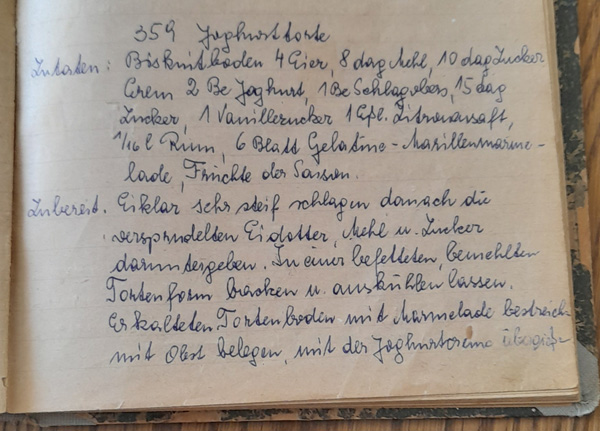 359 Joghurttorte
Zutaten: Biskuitboden 4 Eier, 8 dag Mehl, 10 dag Zucker
Crem 2 Be Joghurt, 1 Be Schlagobers, 15 dag
Zucker, 1 Vanillezucker 1 Eßl. Zitronensaft,
1/16 l Rum, 6 Blatt Gelatine - Marillenmarme-
lade, Früchte der Saison.
Zubereit. Eiklar sehr steif schlagen danach die
versprudelten Eidotter, Mehl u. Zucker
daruntergeben. In einer befetteten, bemehlten
Tortenform backen u. auskühlen lassen.
Erkalteten Tortenboden mit Marmelade bestreich-
mit Obst belegen, mit der Joghurtcreme übergieß-